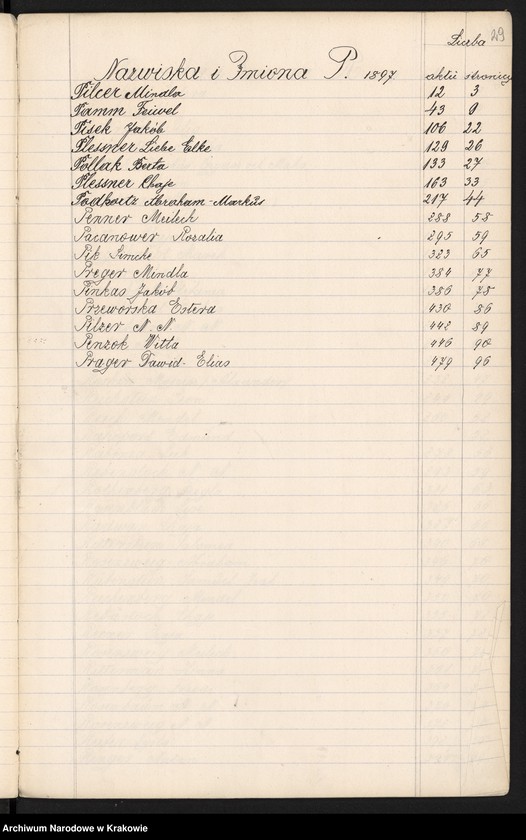 29
Liczba
Nazwiska i Imiona P. 1897 aktu stronicy
Pilcer Mindla 12 3
Pamm Feiwel 43 9
Pisek Jakób 106 22
Plessner Liebe Elke 129 26
Pollak Berta 133 27
Plessner Chaje 163 33
Podhortz Abraham-Markus 217 44
Penner Meilech 288 58
Pacanower Rozalia 295 59
Pik Simche 323 65
Preger Mindla 384 77
Pinkas Jakób 386 78
Przeworska Estera 430 86
Pilzer N. N. 442 89
Penzok Witta 446 90
Prager Dawid-Elias 479 96
Archiwum Narodowe w Krakowie